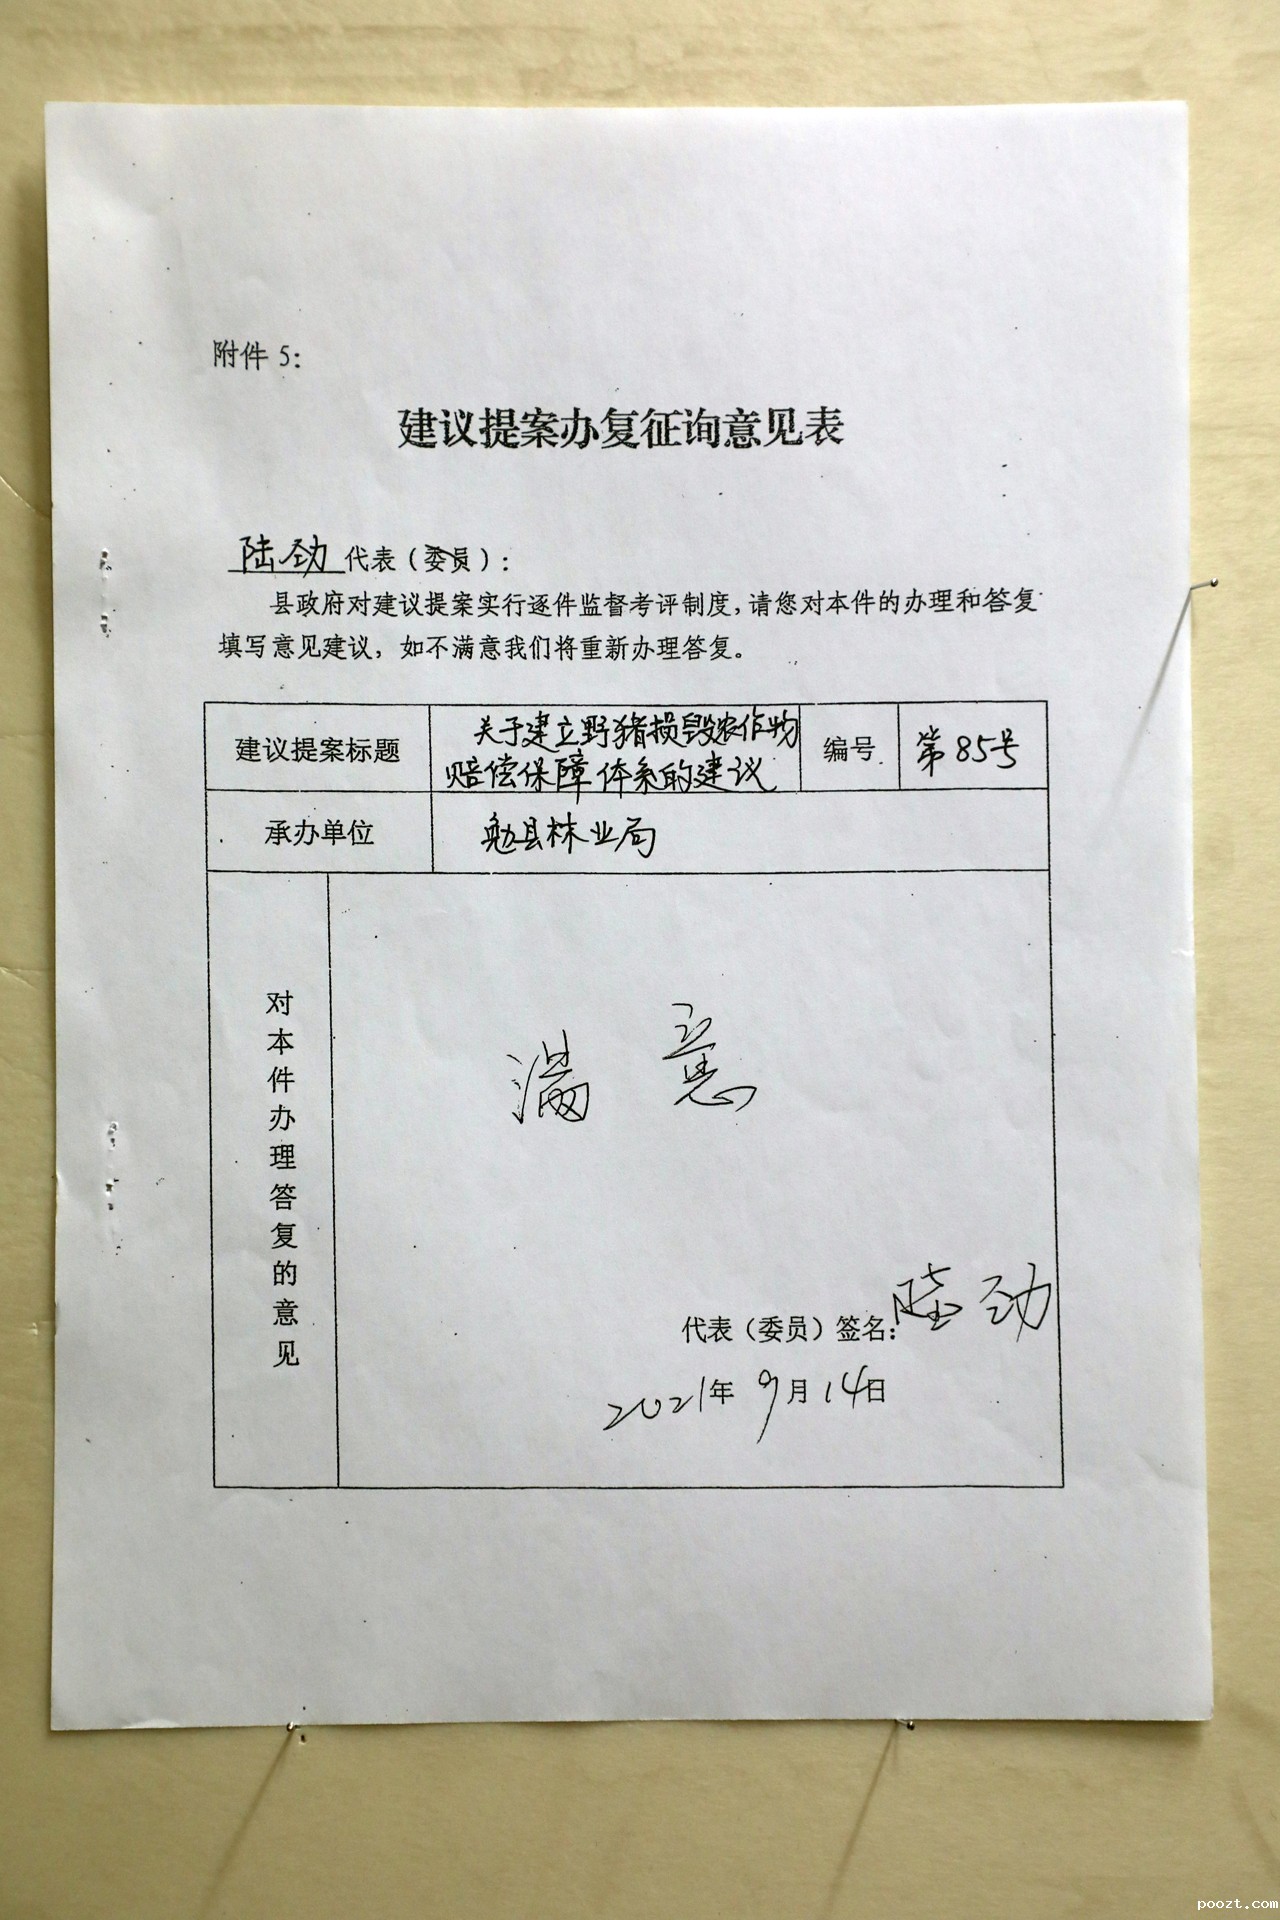 附件 5:
建议提案办复征询意见表
陆劲代表（委员）：
县政府对建议提案实行逐件监督考评制度，请您对本件的办理和答复
填写意见建议，如不满意我们将重新办理答复。
建议提案标题
关于建立野猪损毁农作物
赔偿保障体系的建议
编号
第85号
承办单位
勉县林业局
对本件办理答复的意见
满意
代表（委员）签名：陆劲
2021年9月14日
poozt.com